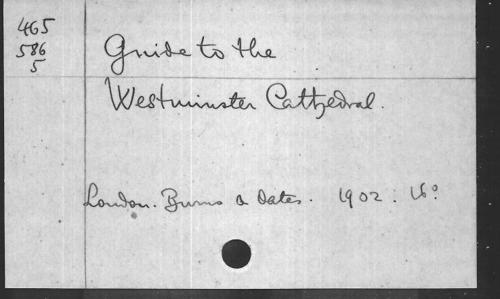 465
586
5
Guide to the
Westminster Cathedral.
London. Burns & Oates. 1902. 16º